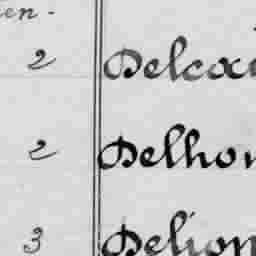 en.
2 Delcoc
2 Delhon
3 Delion